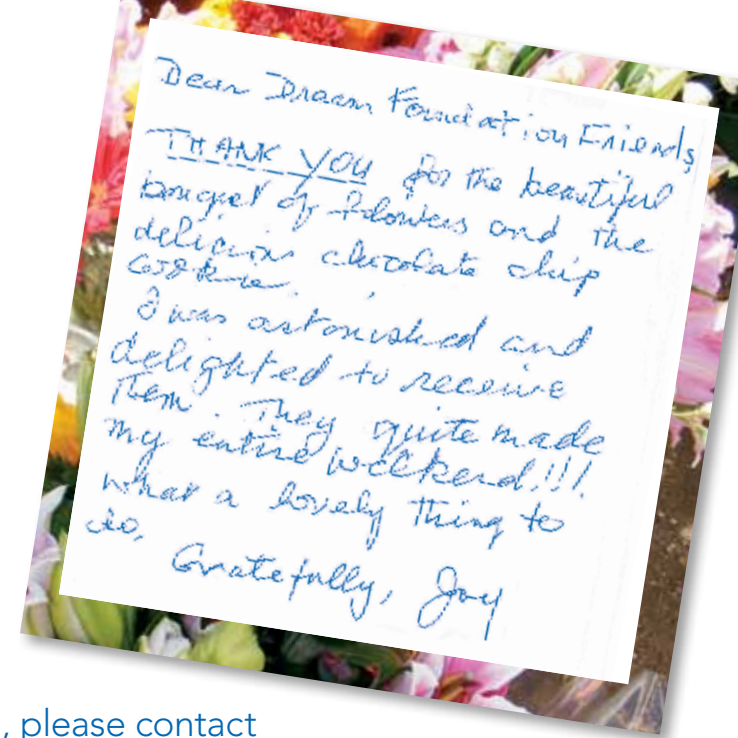 Dear Dream Foundation Friends,
THANK YOU for the beautiful
bouquet of folowers and the
delicious chocolate chip
cookie.
I was astonished and
delighted to receive
Them. They quite made
my entire weekend!!!
What a lovely thing to
do,
Gratefully, Joy
, please contact